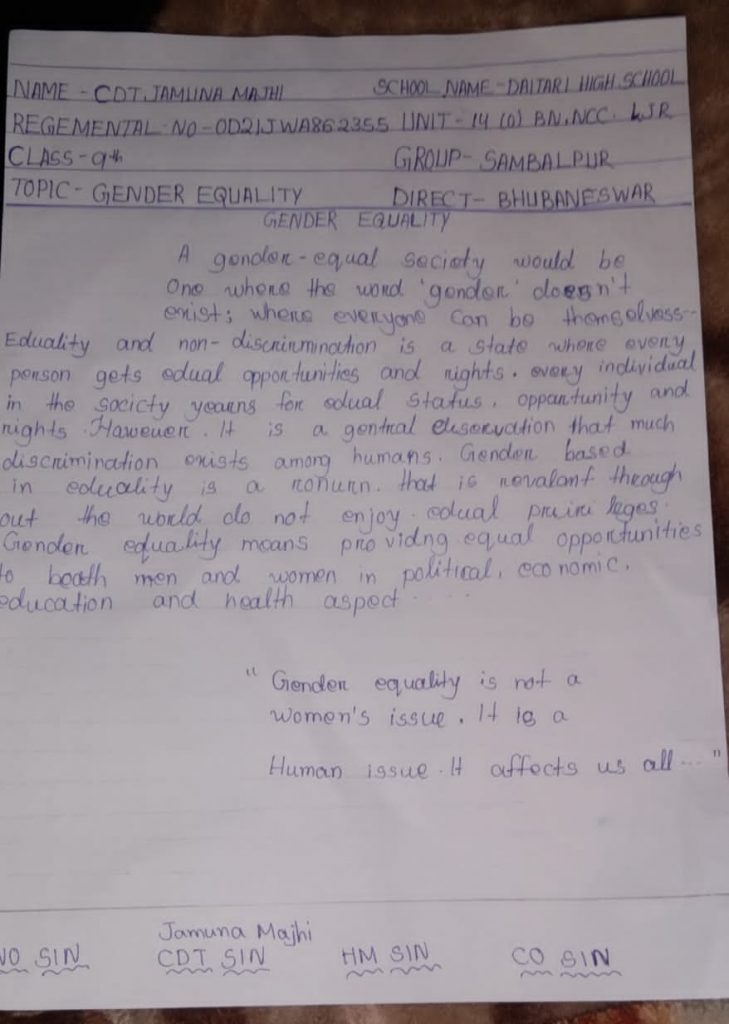 NAME - CDT. JAMUNA MAJHI SCHOOL NAME - DAITARI HIGH SCHOOL
REGEMENTAL NO - OD21JWA862355 UNIT - 14 (O) BN. NCC. KJR
CLASS - 9th GROUP - SAMBALPUR
TOPIC - GENDER EQUALITY DIRECT - BHUBANESWAR
GENDER EQUALITY
A gender-equal society would be
One where the word 'gender' doesn't
exist; where everyone can be themselvess-
Eduality and non-discrinmination is a state where every
person gets edual opportunities and rights. every individual
in the society yearns for edual status. oppartunity and
rights. Haweuer. It is a gentral that much
discrimination exists among humans. Gender based
in eduality is a that is through
out the world do not enjoy. edual
Gender equality means pro vidng equal opportunities
to beath men and women in political, economic,
education and health aspect .....
" Gender equality is not a
women's issue. It is a
Human issue. It affects us all ... "
Jamuna Majhi
SIN CDT SIN HM SIN CO SIN